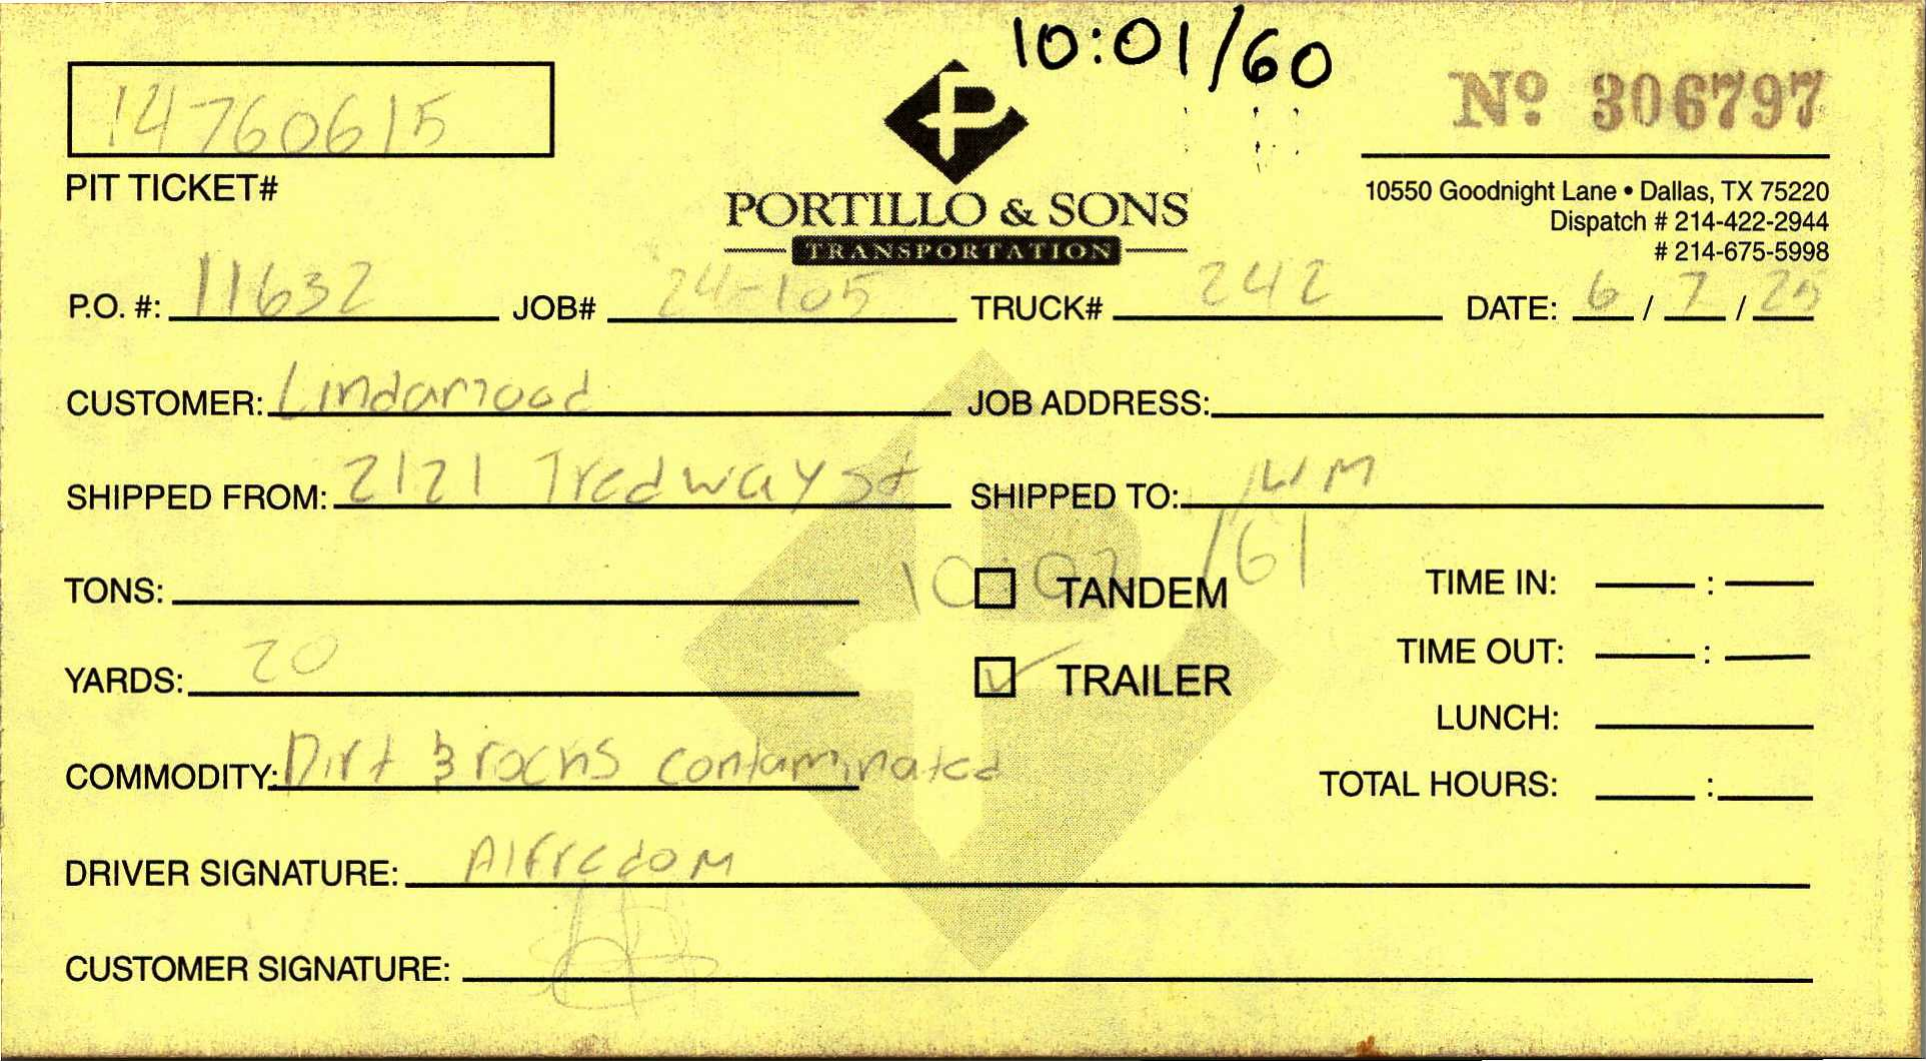 10:01/60
14760615
Nº 306797
PIT TICKET#
PORTILLO & SONS
TRANSPORTATION
10550 Goodnight Lane • Dallas, TX 75220
Dispatch # 214-422-2944
# 214-675-5998
P.O. #: 11632 JOB# 24-105 TRUCK# 242 DATE: 6 / 7 / 25
CUSTOMER: Lindamood JOB ADDRESS:
SHIPPED FROM: 2121 Tredway st SHIPPED TO: WM
10:02/61
TONS: TANDEM TIME IN: :
TIME OUT: :
YARDS: 20 TRAILER
LUNCH:
COMMODITY: Dirt & rocks contaminated TOTAL HOURS: :
DRIVER SIGNATURE: Alfredo M
CUSTOMER SIGNATURE: